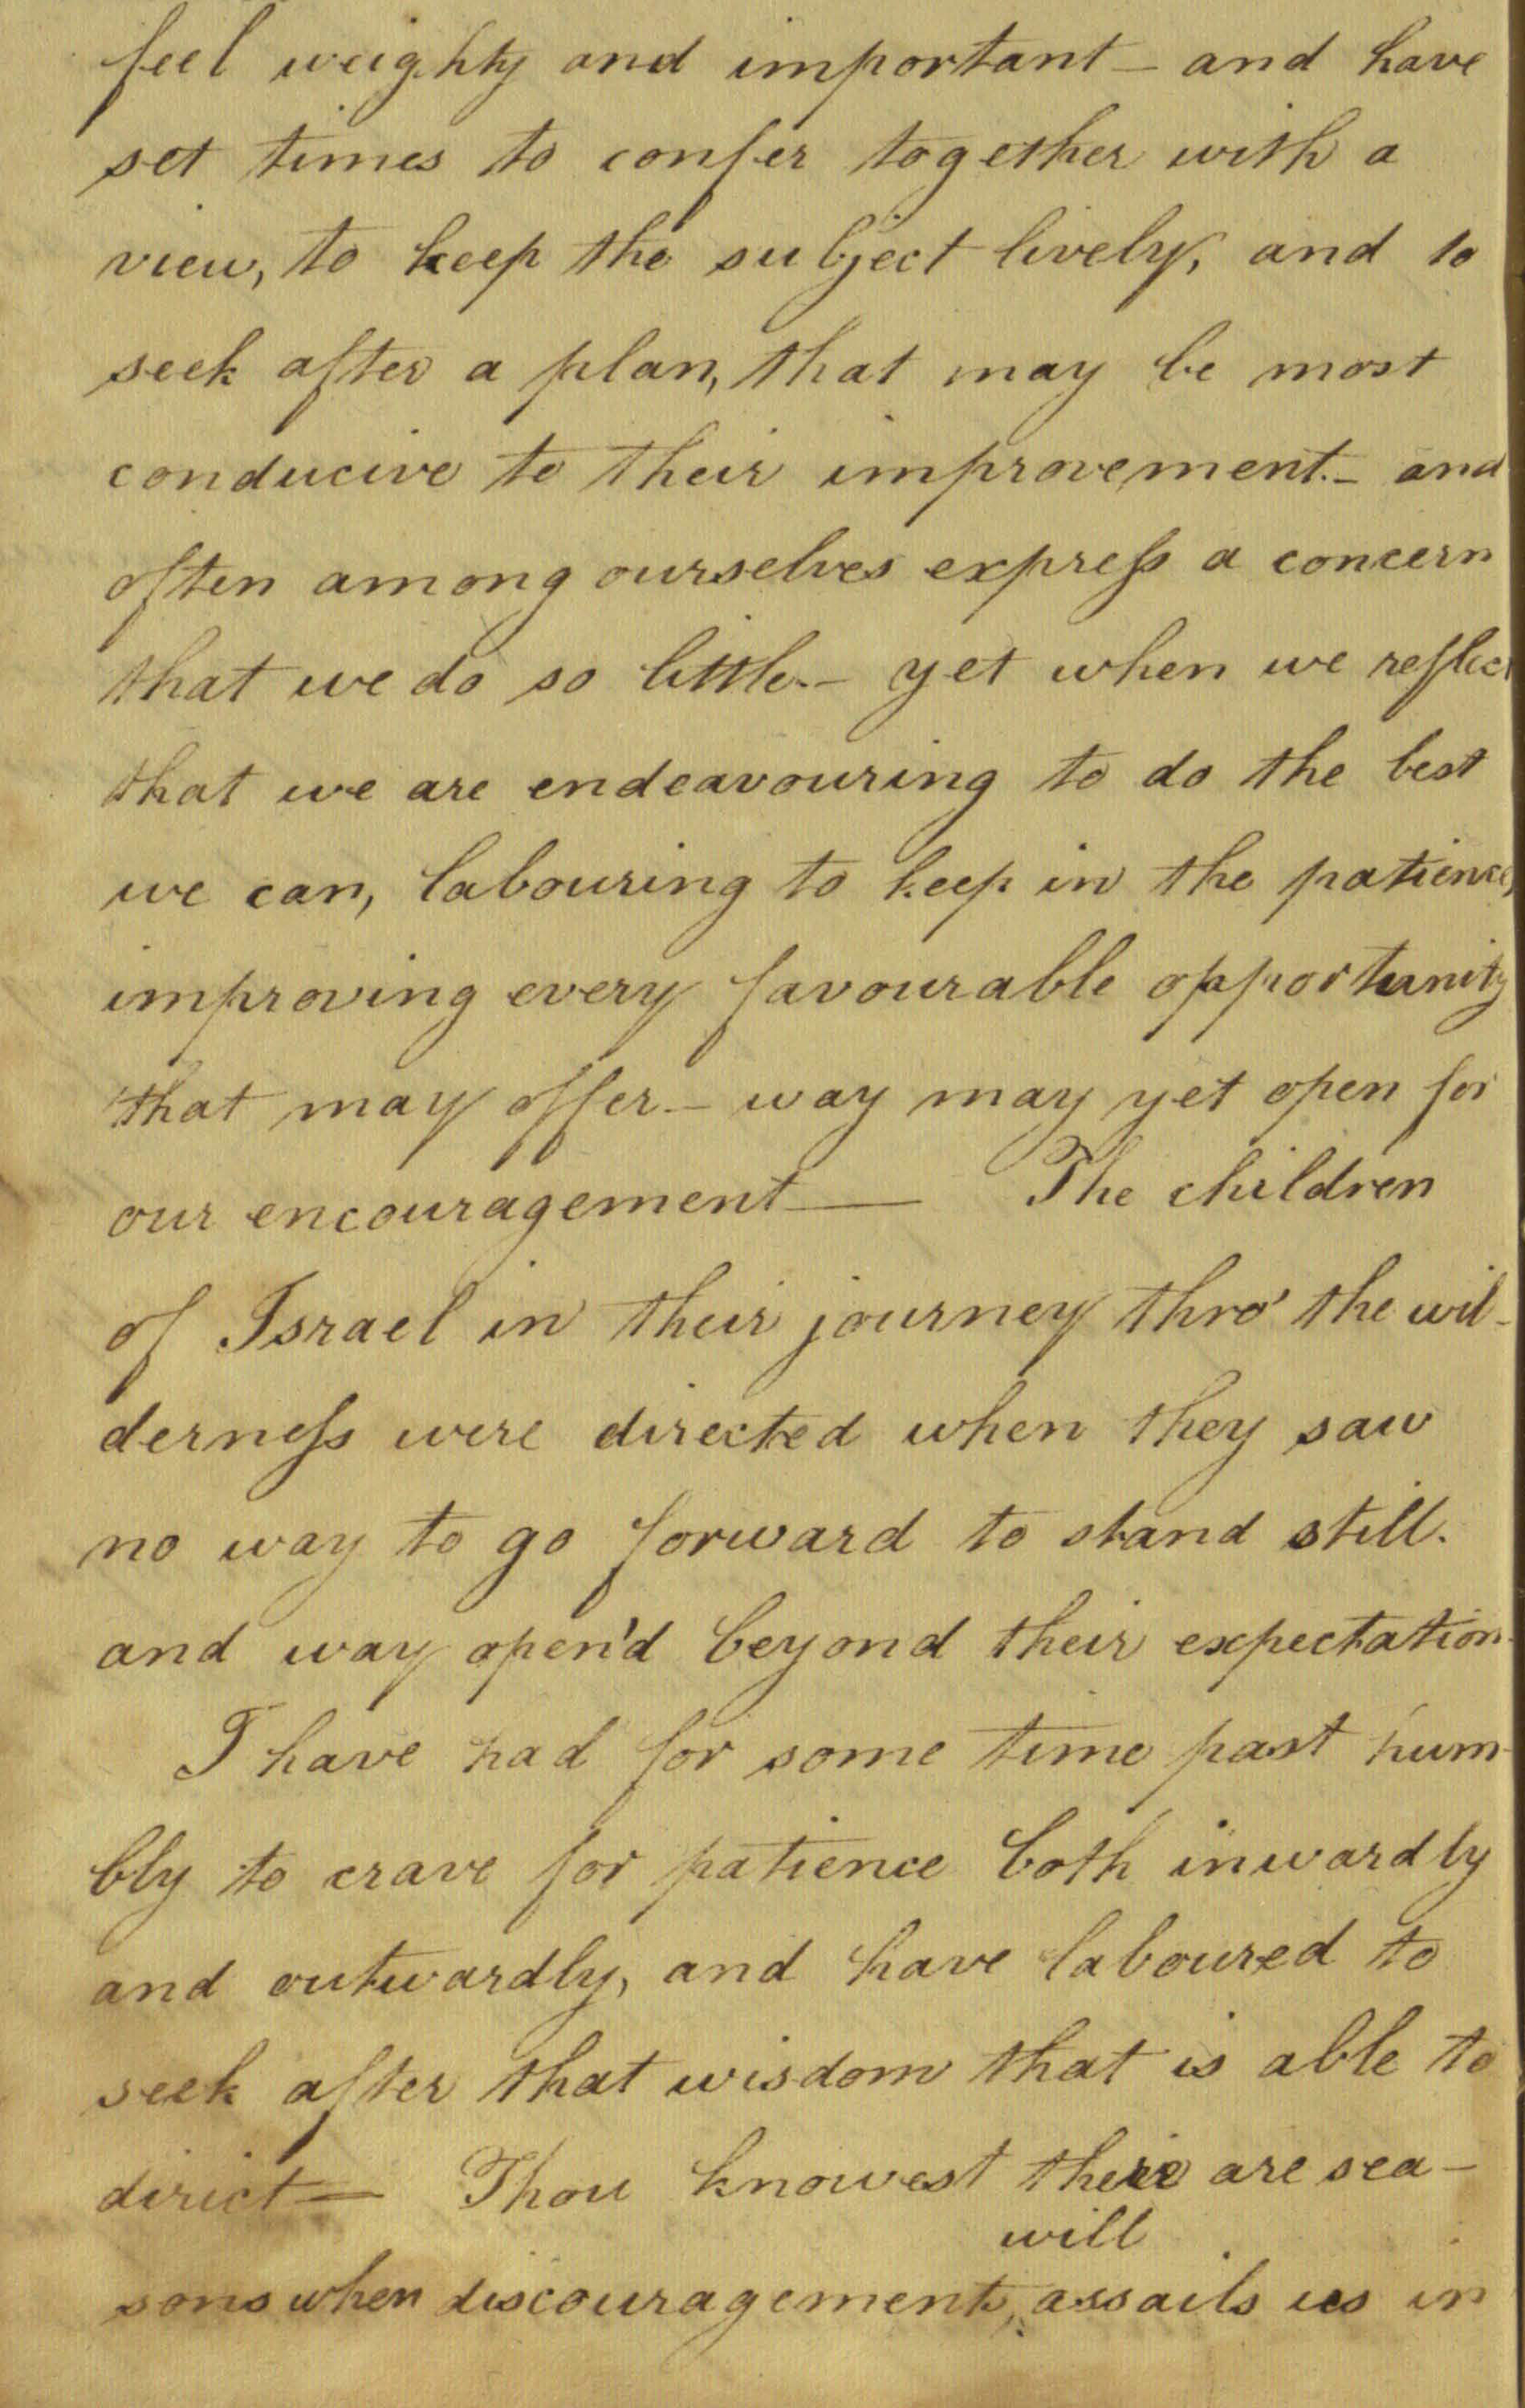 feel weighty and important – and have
set times to confer together with a
view, to keep the subject lively, and to
seek after a plan, that may be most
conducive to their improvement. – and
often among ourselves expreſs a concern
that we do so little – yet when we reflect
that we are endeavouring to do the best
we can, labouring to keep in the patience,
improving every favourable opportunity
that may offer – way may yet open for
our encouragement — The children
of Israel in their journey thro' the wil-
derneſs were directed when they saw
no way to go forward to stand still.
and way open'd beyond their expectation
I have had for some time past hum-
bly to crave for patience both inwardly
and outwardly, and have laboured to
seek after that wisdom that is able to
direct — Thou knowest there are sea-
will
sons when discouragements, assails us in